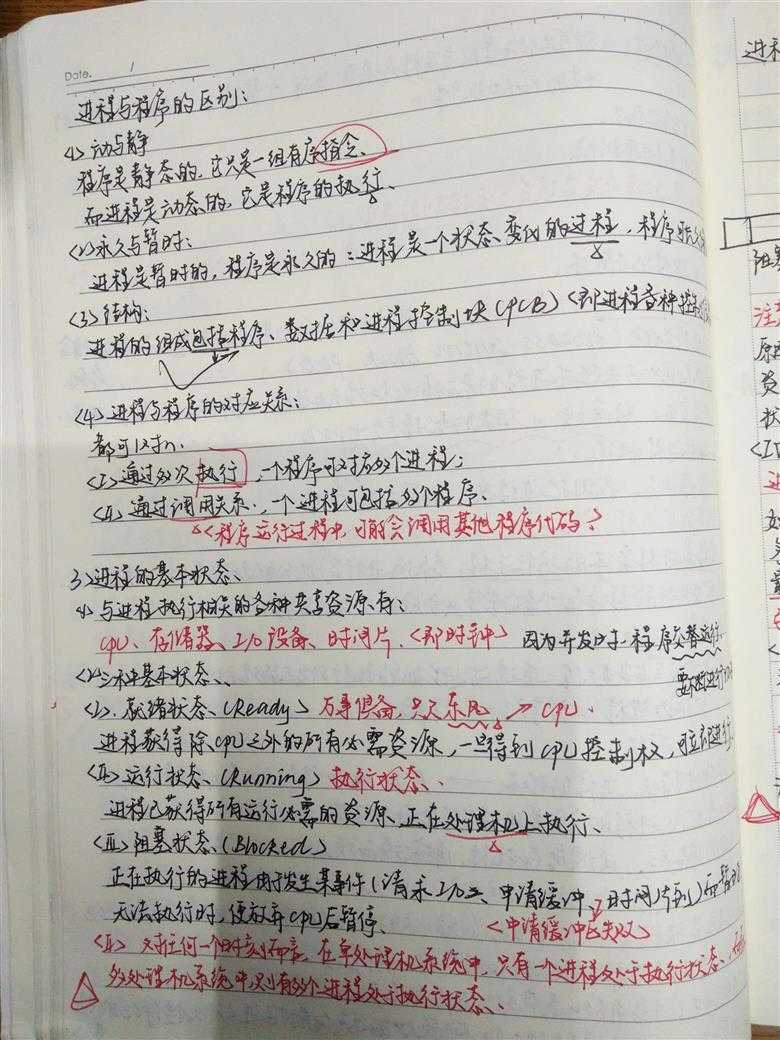 Date. 1
进程与程序的区别:
<1>动与静
程序是静态的,它只是一组有序指令、
而进程是动态的,它是程序的执行、
<2>永久与暂时:
进程是暂时的,程序是永久的:进程是一个状态变化的过程,程序可长久
<3>结构:
进程的组成包括程序、数据和进程控制块(PCB)<即进程各种控制
<4>进程与程序的对应关系:
都可以对n、
<I>通过多次执行,一个程序可对应多个进程;
<II>通过调用关系,一个进程可包括多个程序、
<程序运行过程中,可能会调用其他程序代码>
3>进程的基本状态、
<1>与进程执行相关的各种共享资源有:
CPU、存储器、I/O设备、时间片、<即时钟> 因为并发时,程序交替运行
要不断进行
<2>三种基本状态、
<I>.就绪状态、(Ready) 万事俱备,只欠东风 → CPU.
进程获得除CPU之外的所有必需资源,一旦得到CPU控制权,可立即运行
<II>运行状态、(Running) 执行状态、
进程已获得所有运行必需的资源、正在处理机上执行、
<III>阻塞状态、(Blocked)
正在执行的进程由于发生某事件(请求I/O、申请缓冲、时间片到)而暂时
无法执行时,便放弃CPU后暂停、 <申请缓冲区失败>
对任何一个时刻而言,在单处理机系统中,只有一个进程处于执行状态、
多处理机系统中,则有多个进程处于执行状态、
进程
阻塞
注
原
资
状